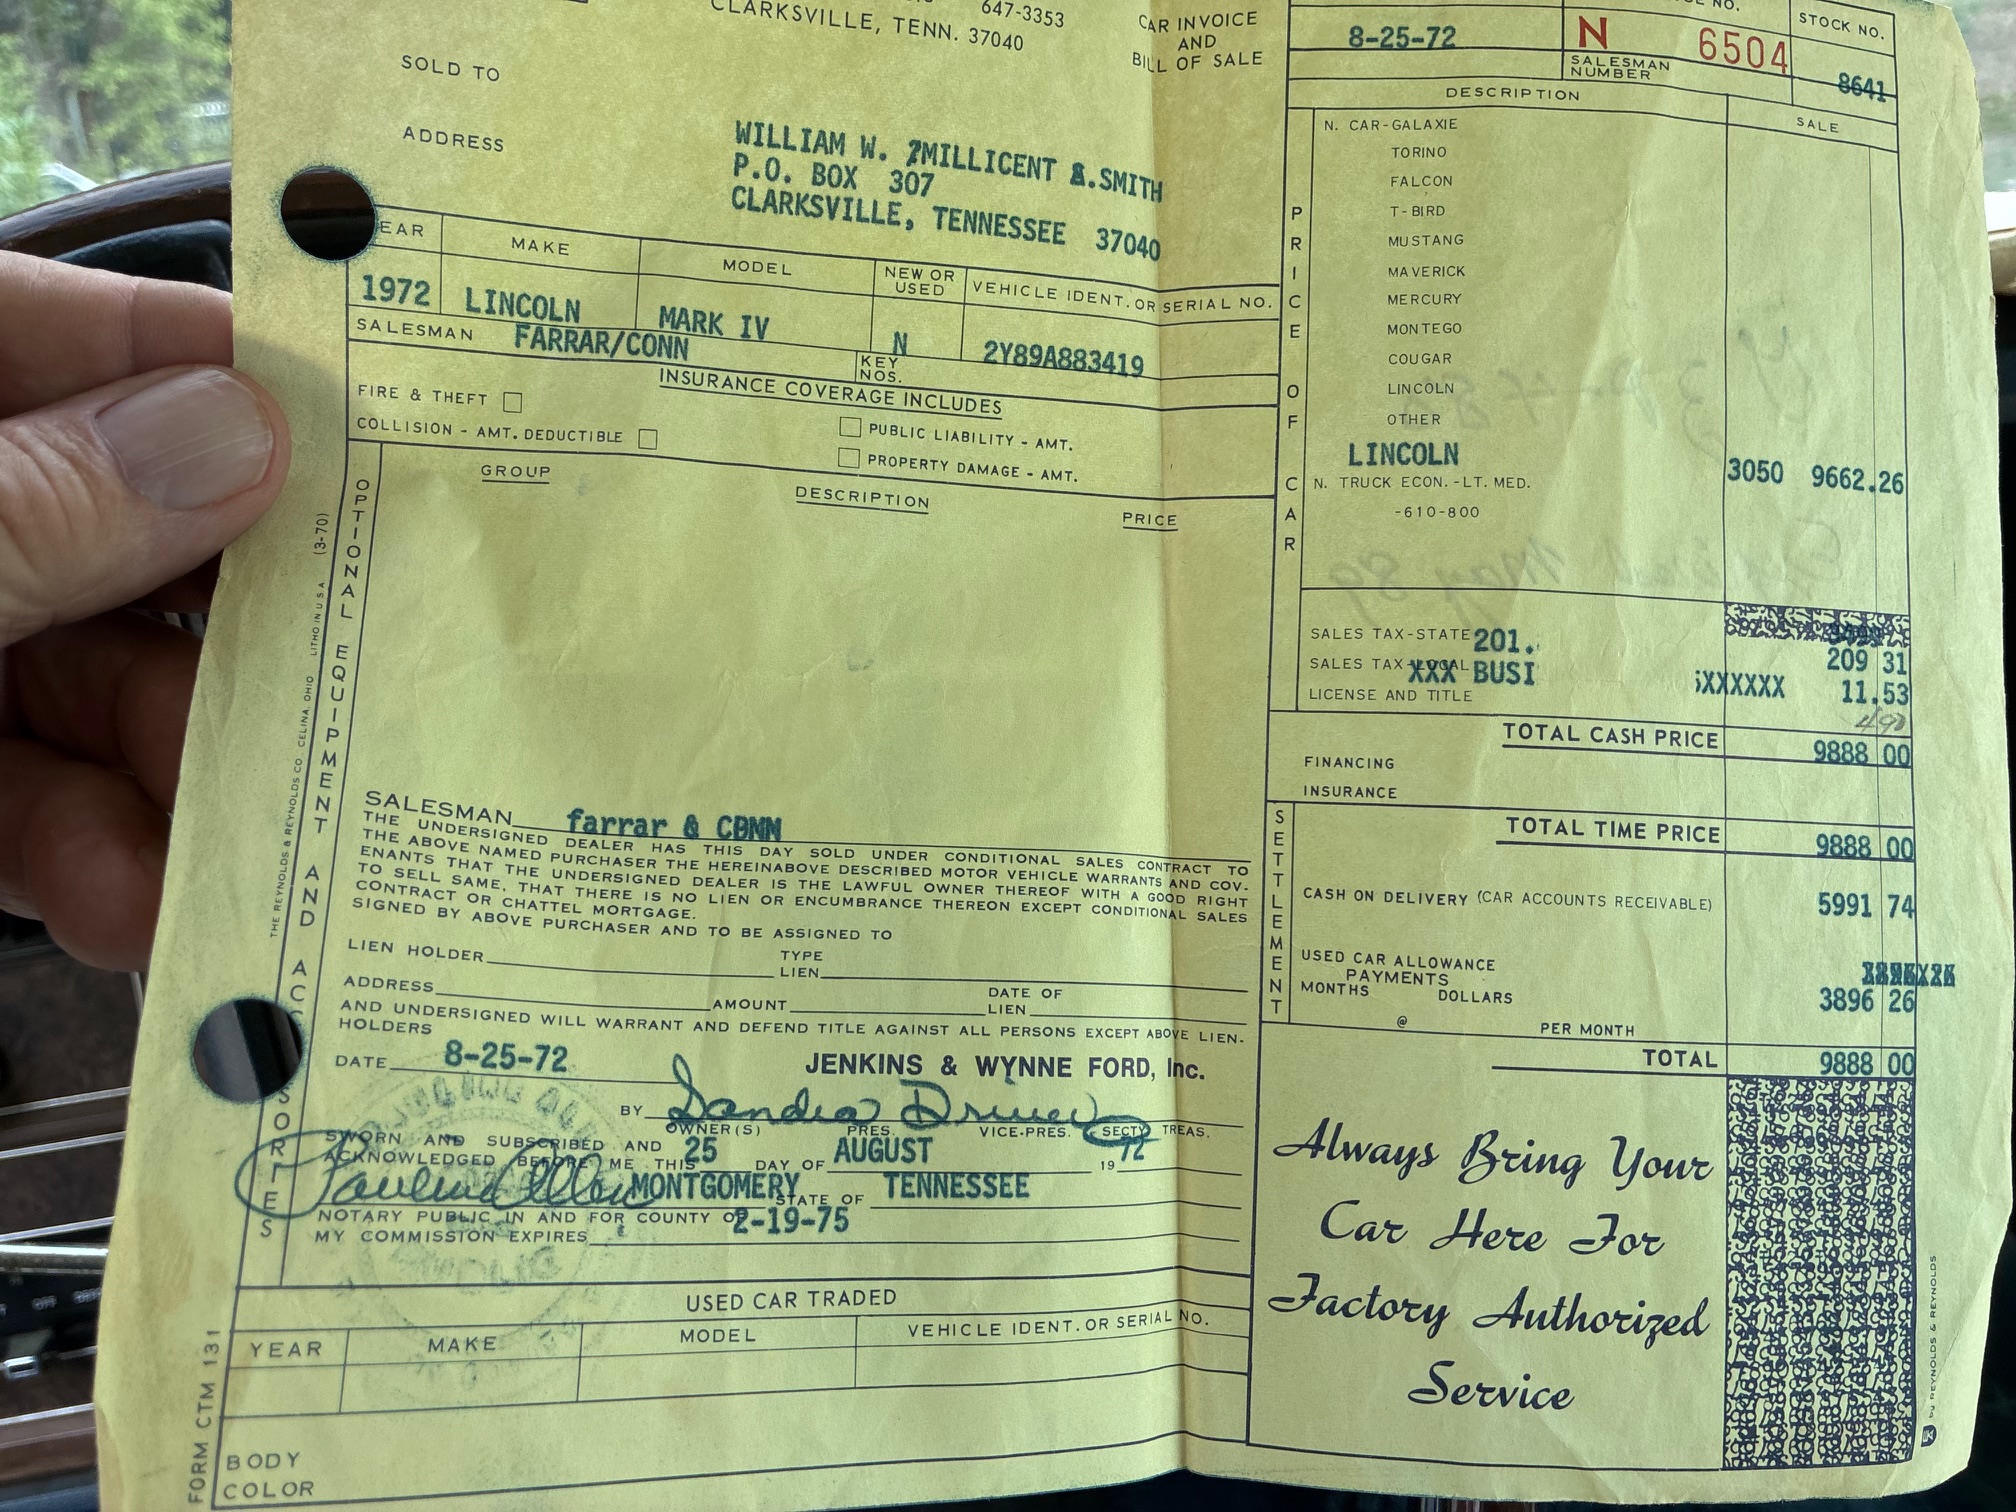 647-3353
CLARKSVILLE, TENN. 37040
CAR INVOICE
AND
BILL OF SALE
NO.
STOCK NO.
8-25-72
N 6504
SALESMAN
NUMBER
8641
SOLD TO
ADDRESS
WILLIAM W. MILLICENT SMITH
P.O. BOX 307
CLARKSVILLE, TENNESSEE 37040
EAR MAKE MODEL NEW OR USED VEHICLE IDENT. OR SERIAL NO.
1972 LINCOLN MARK IV N 2Y89A883419
SALESMAN FARRAR/CONN KEY NOS.
INSURANCE COVERAGE INCLUDES
FIRE & THEFT
COLLISION - AMT. DEDUCTIBLE
PUBLIC LIABILITY - AMT.
PROPERTY DAMAGE - AMT.
OPTIONAL EQUIPMENT AND ACCESSORIES
GROUP DESCRIPTION PRICE
SALESMAN farrar & CONN
THE UNDERSIGNED DEALER HAS THIS DAY SOLD UNDER CONDITIONAL SALES CONTRACT TO
THE ABOVE NAMED PURCHASER THE HEREINABOVE DESCRIBED MOTOR VEHICLE WARRANTS AND COV-
ENANTS THAT THE UNDERSIGNED DEALER IS THE LAWFUL OWNER THEREOF WITH A GOOD RIGHT
TO SELL SAME, THAT THERE IS NO LIEN OR ENCUMBRANCE THEREON EXCEPT CONDITIONAL SALES
CONTRACT OR CHATTEL MORTGAGE.
SIGNED BY ABOVE PURCHASER AND TO BE ASSIGNED TO
LIEN HOLDER TYPE LIEN
ADDRESS AMOUNT DATE OF LIEN
AND UNDERSIGNED WILL WARRANT AND DEFEND TITLE AGAINST ALL PERSONS EXCEPT ABOVE LIEN-
HOLDERS
DATE 8-25-72 JENKINS & WYNNE FORD, Inc.
BY Sandra Driver
OWNER(S) PRES. VICE-PRES. SECTY TREAS.
SWORN AND SUBSCRIBED AND
ACKNOWLEDGED BEFORE ME THIS 25 DAY OF AUGUST 19 72
Pauline Allen MONTGOMERY STATE OF TENNESSEE
NOTARY PUBLIC IN AND FOR COUNTY OF
MY COMMISSION EXPIRES 2-19-75
USED CAR TRADED
YEAR MAKE MODEL VEHICLE IDENT. OR SERIAL NO.
BODY
COLOR
FORM CTM 131
THE REYNOLDS & REYNOLDS CO. CELINA, OHIO LITHO IN U.S.A (3-70)
DESCRIPTION SALE
PRICE OF CAR
N. CAR-GALAXIE
TORINO
FALCON
T-BIRD
MUSTANG
MAVERICK
MERCURY
MONTEGO
COUGAR
LINCOLN
OTHER
LINCOLN 3050 9662.26
N. TRUCK ECON.-LT. MED.
-610-800
SALES TAX-STATE 201.
SALES TAX-LOCAL 209 31
XXX BUSI XXXXXX
LICENSE AND TITLE 11.53
TOTAL CASH PRICE 9888 00
FINANCING
INSURANCE
SETTLEMENT
TOTAL TIME PRICE 9888 00
CASH ON DELIVERY (CAR ACCOUNTS RECEIVABLE) 5991 74
USED CAR ALLOWANCE
PAYMENTS
MONTHS DOLLARS 3896 26
@ PER MONTH
TOTAL 9888 00
Always Bring Your
Car Here For
Factory Authorized
Service
by REYNOLDS & REYNOLDS